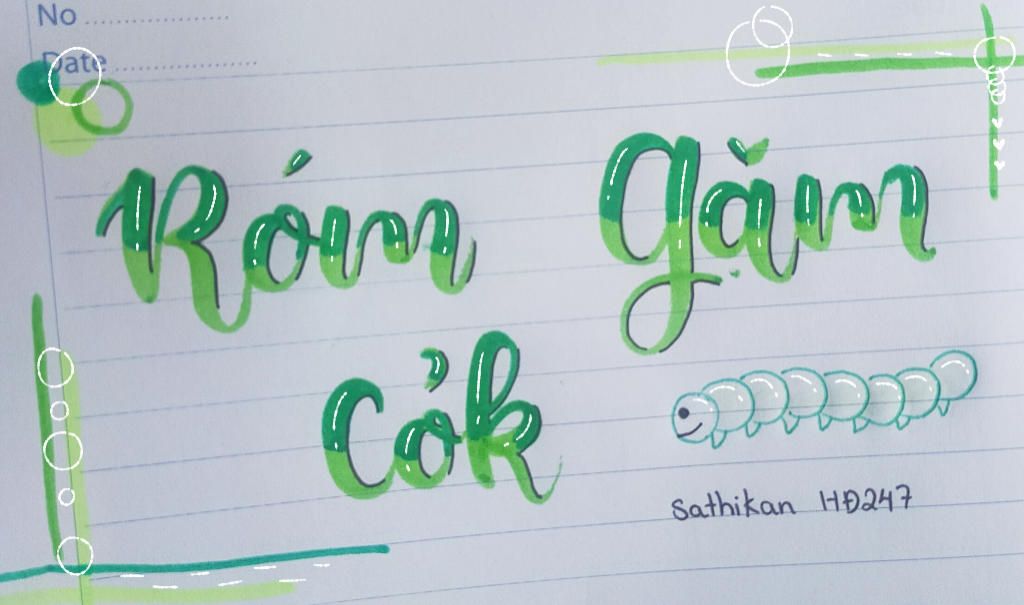 No ....................
Date ....................
Róm gặm
Cỏk
Sathikan HĐ247